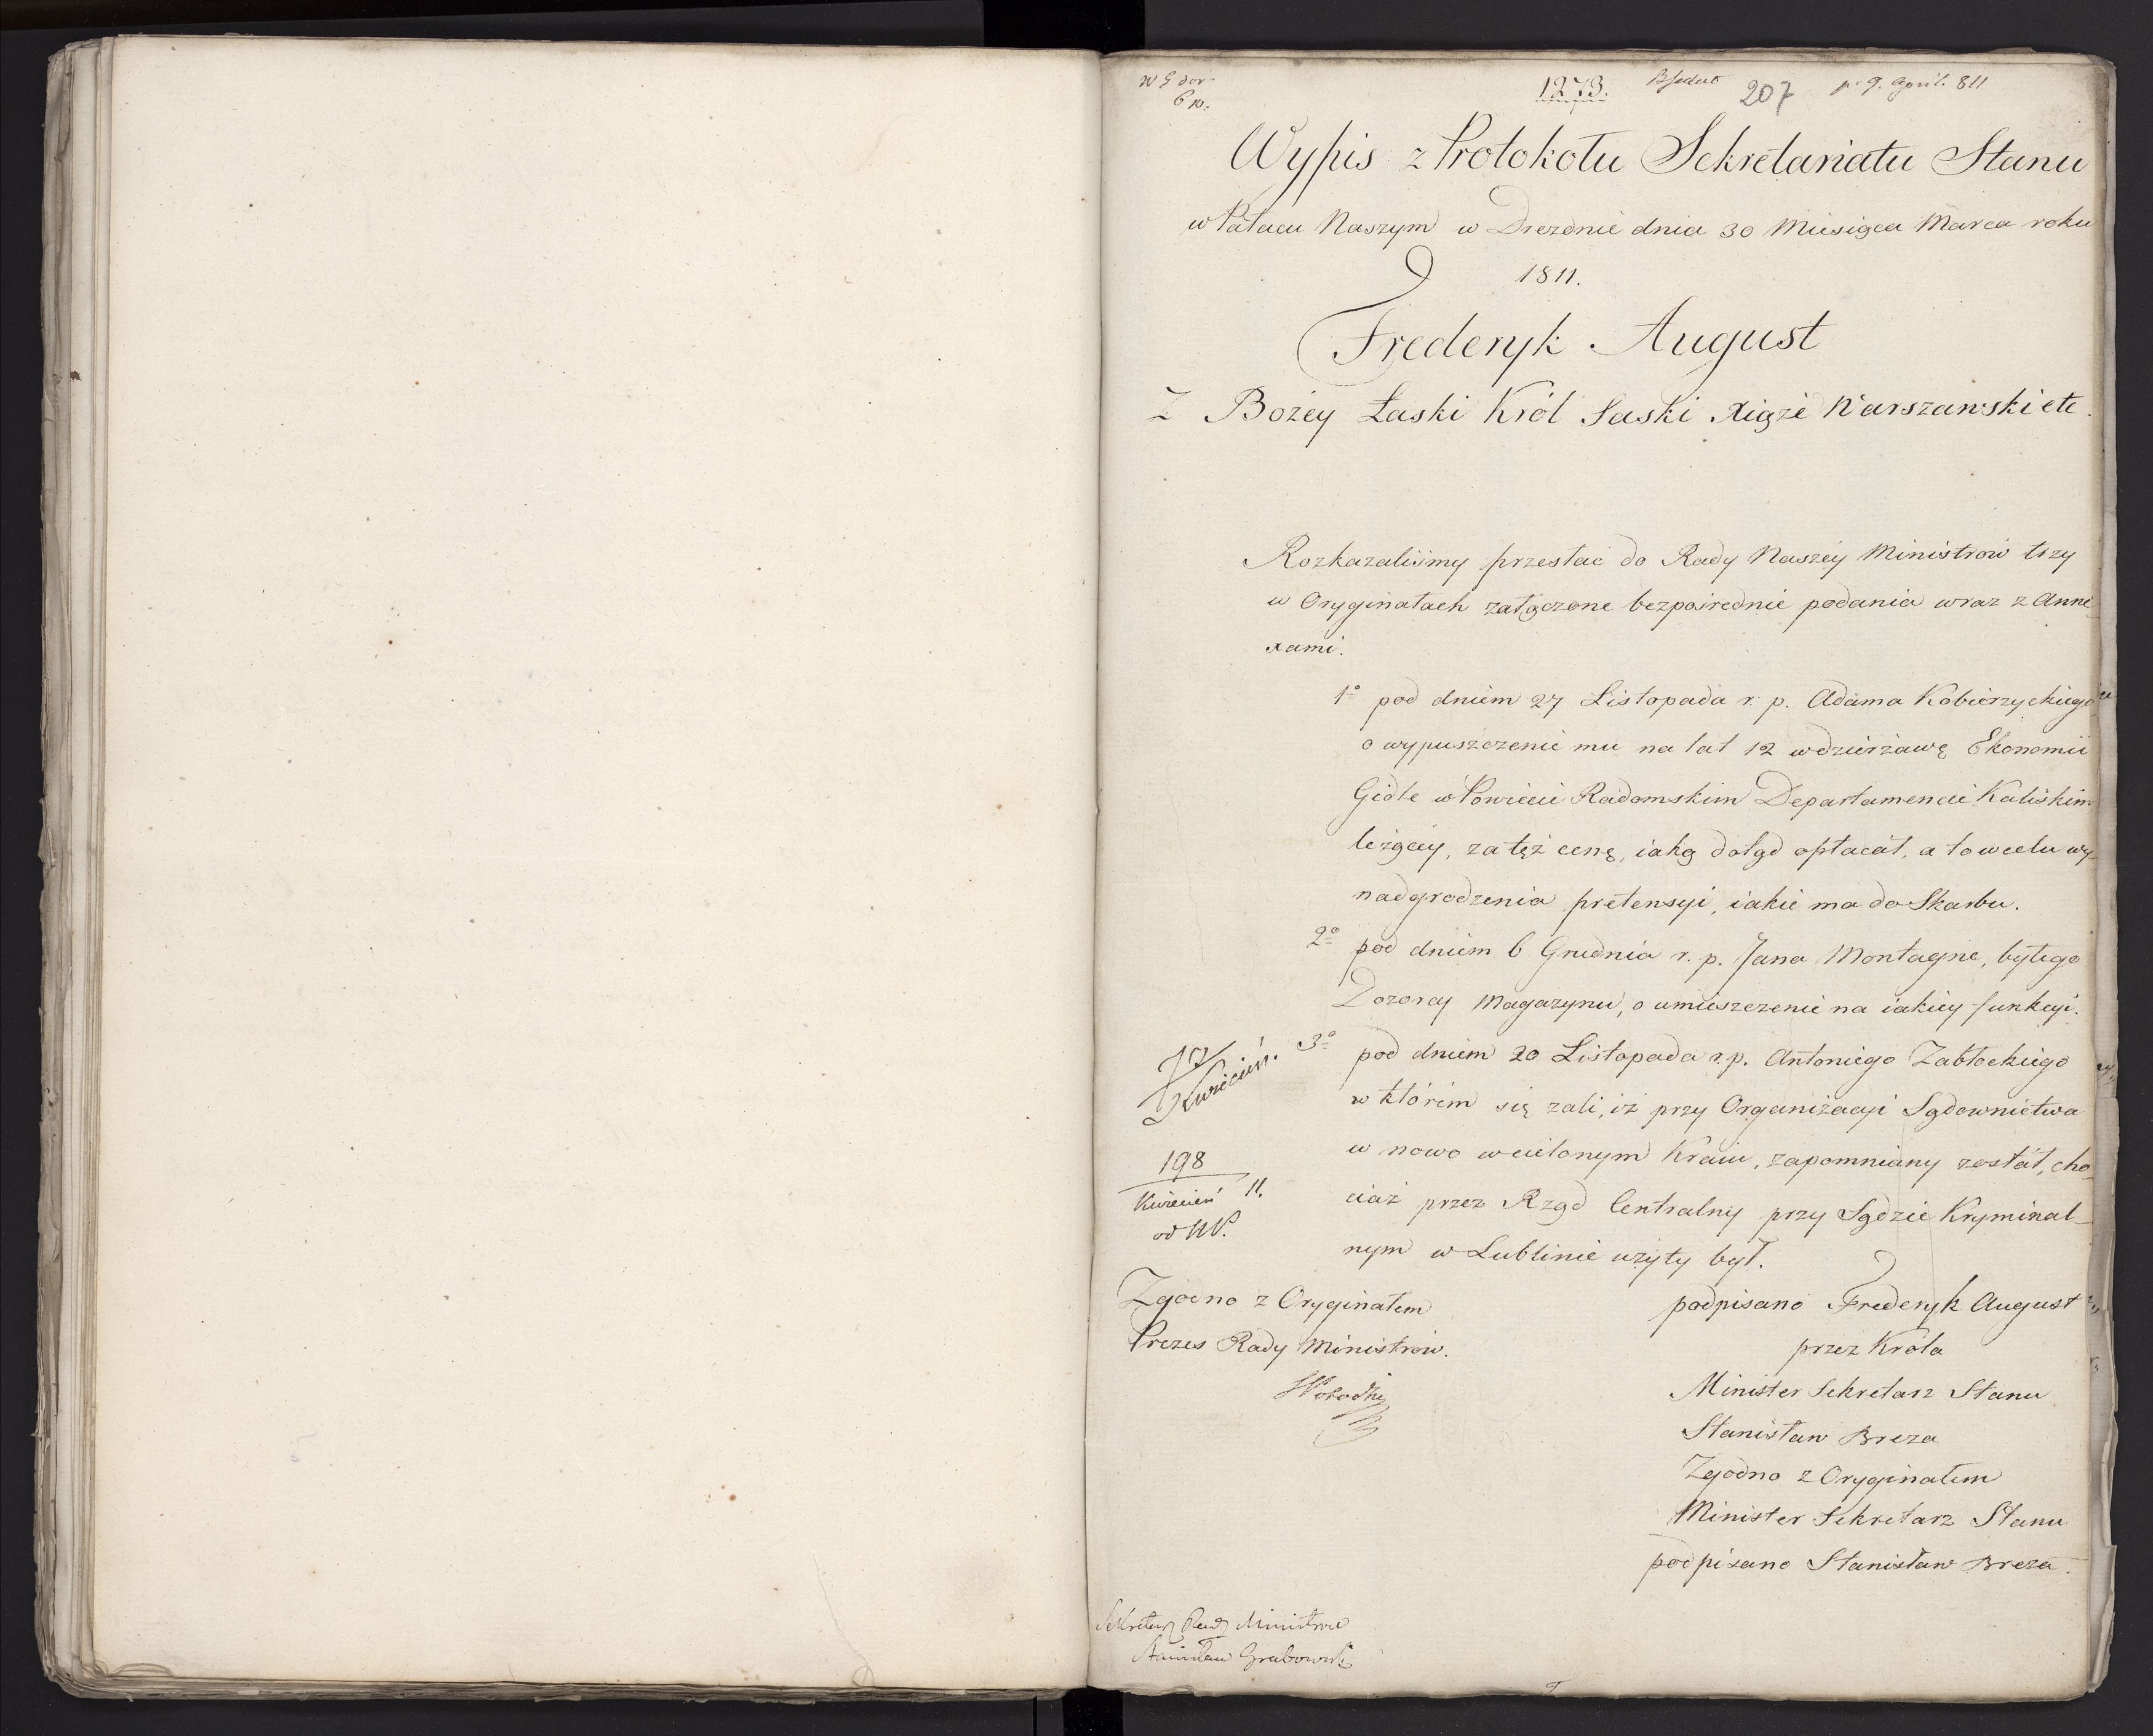 1273.
207
p. 9. April. 811
Wypis z Protokołu Sekretariatu Stanu
w Pałacu Naszym w Dreznie dnia 30 Miesiąca Marca roku
1811.
Frederyk August
Z Bożey Łaski Król Saski Xiąże Warszawski etc.
Rozkazaliśmy przesłać do Rady Naszéy Ministrów trzy
w Oryginałach załączone bezpośrednie podania wraz z Anne-
xami.
1º pod dniem 27 Listopada r. p. Adama Kobierzyckiego,
o wypuszczenie mu na lat 12 w dzierżawę Ekonomii
Gidle w Powiecie Radomskim Departamencie Kaliskim
leżącey, za tęż cenę, iaką dotąd opłacał, a to w celu wy-
nadgrodzenia pretensyi, iakie ma do Skarbu.
2º pod dniem 6 Grudnia r. p. Jana Montagne, byłego
Dozorcy Magazynu, o umieszczenie na iakiey funkcyi.
3º pod dniem 20 Listopada r. p. Antoniego Zabłockiego
w którém się żali, iż przy Organizacyi Sądownictwa
w nowo wcielonym Kraiu, zapomniany został, cho-
ciaż przez Rząd Centralny przy Sądzie Kryminal-
nym w Lublinie użyty był.
Kwiecień.
198
Kwiecień 11.
Zgodno z Oryginałem
Prezes Rady Ministrów.
podpisano Frederyk August
przez Króla
Minister Sekretarz Stanu
Stanisław Breza
Zgodno z Oryginałem
Minister Sekretarz Stanu
podpisano Stanisław Breza.
Sekretarz Rady Ministrów
Stanisław Grabowski